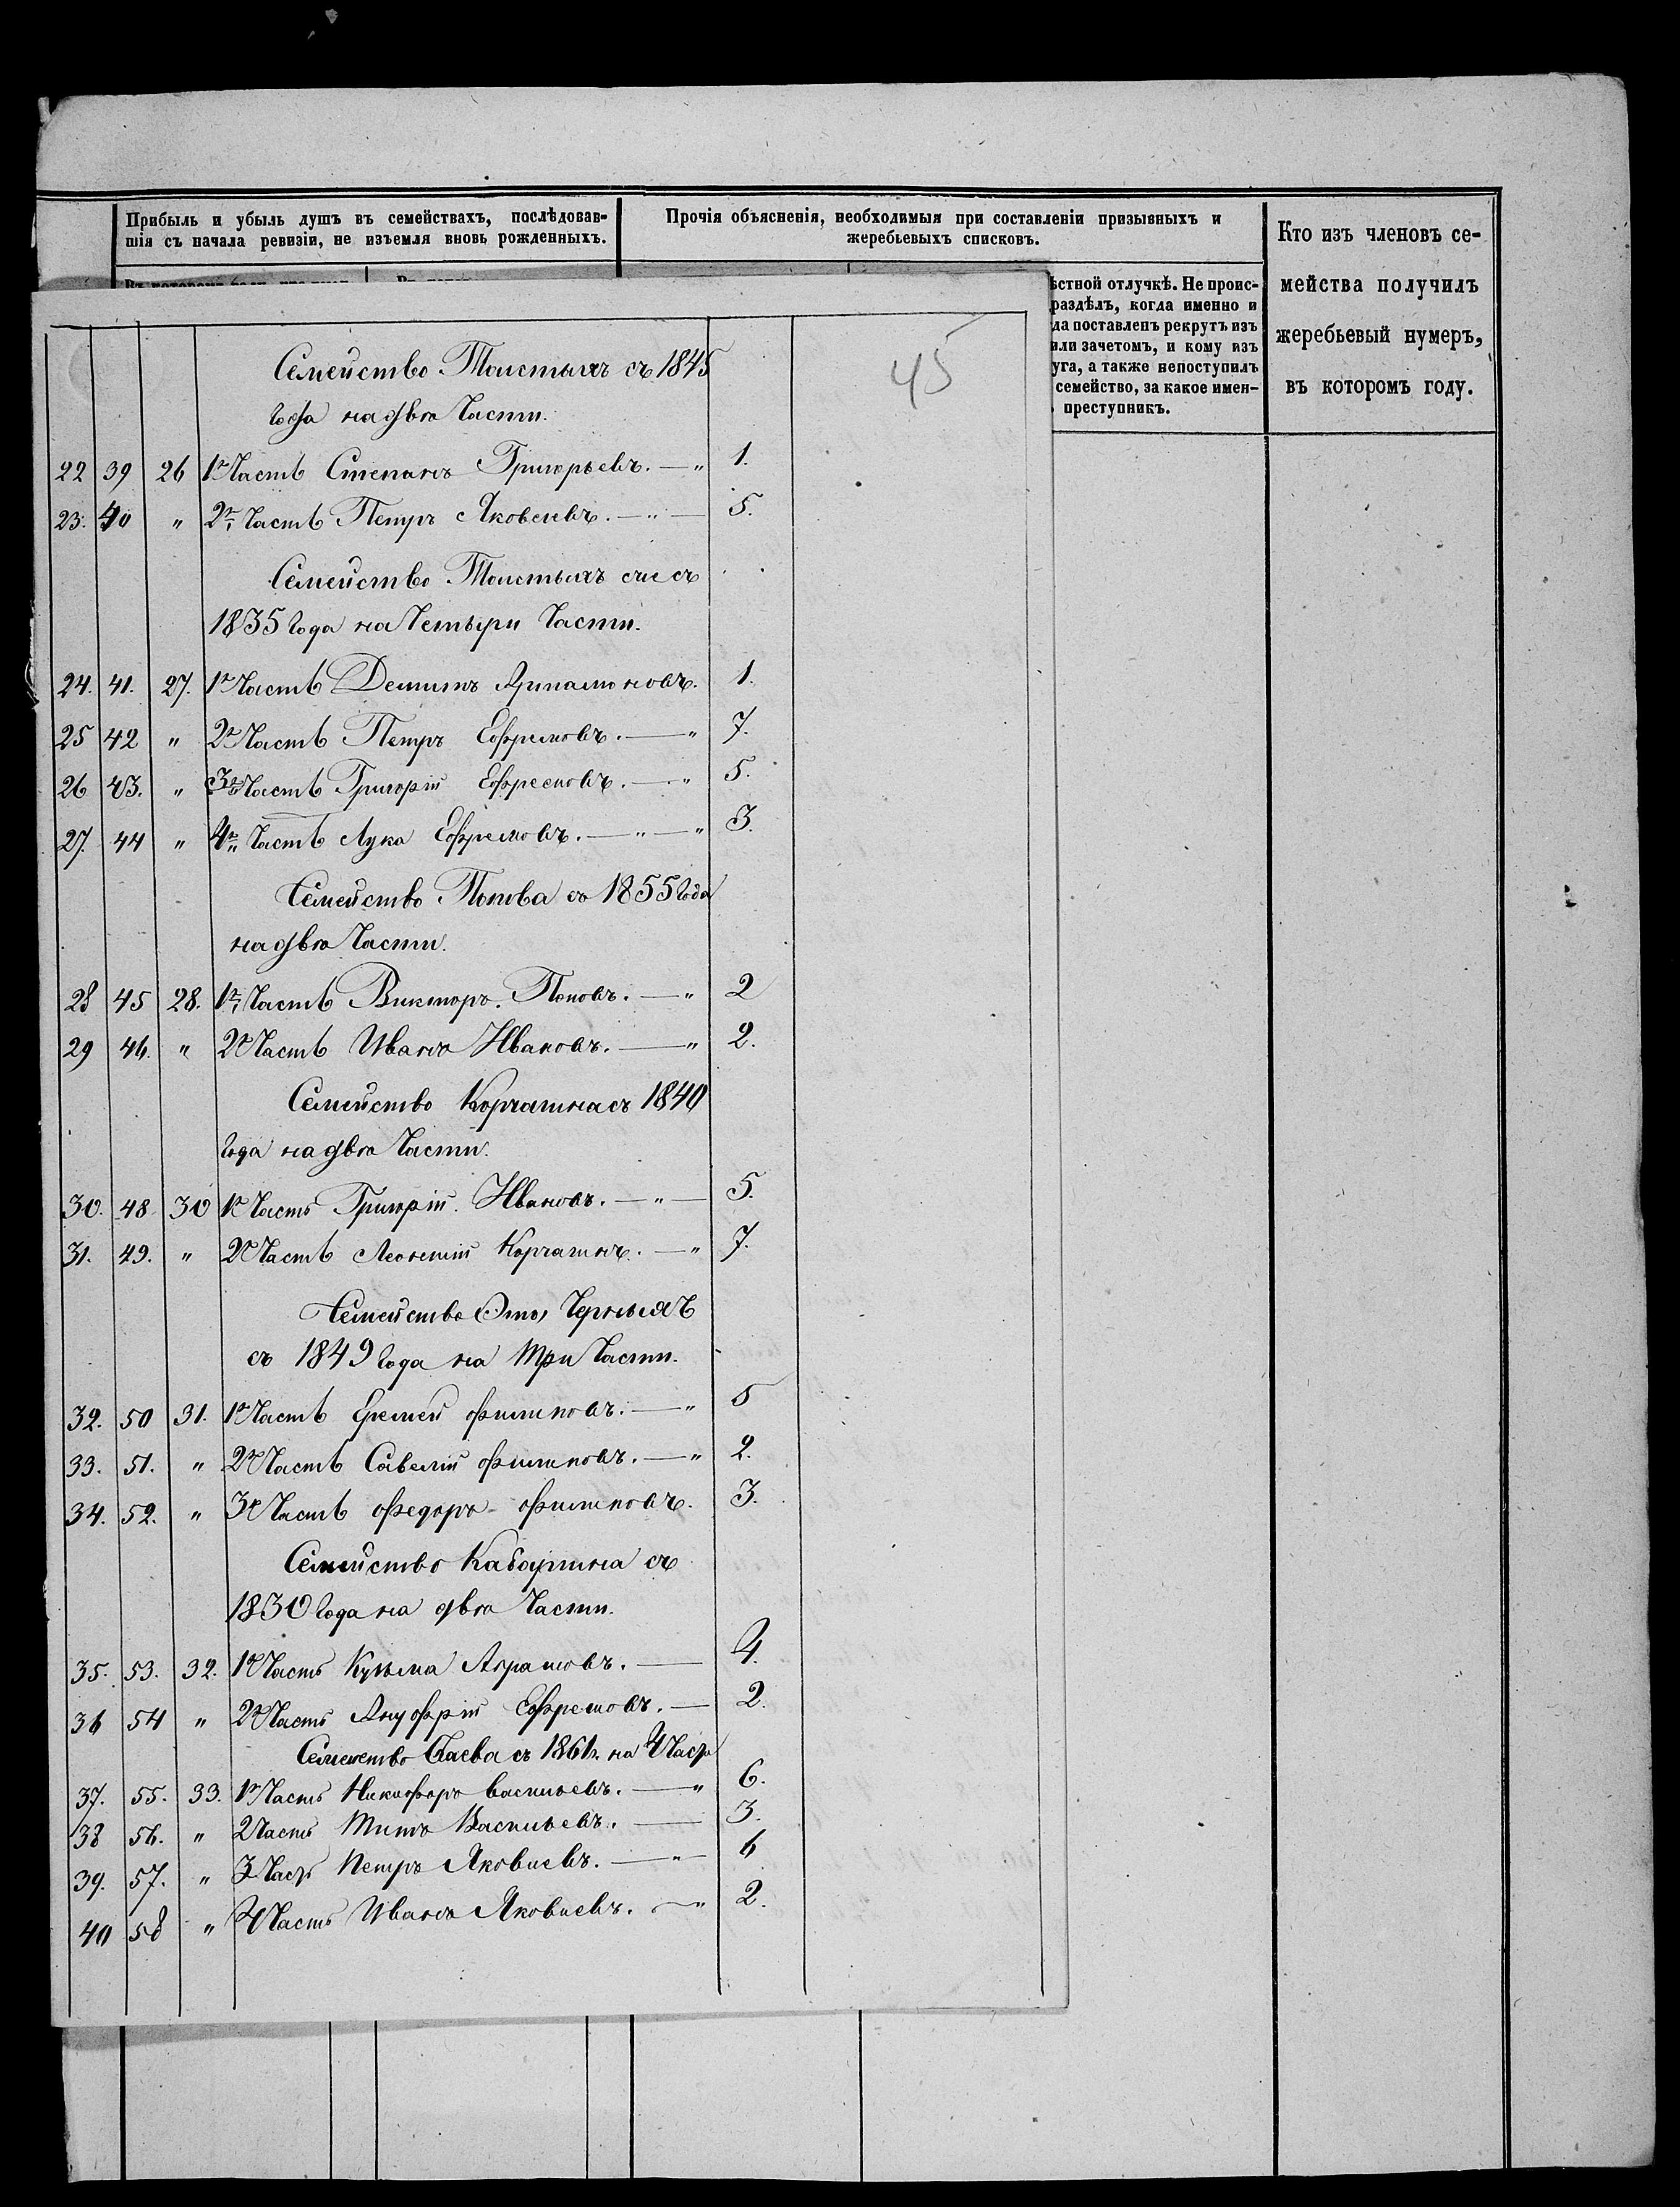 Прибыль и убыль душъ въ семействахъ, послѣдовав-
шія съ начала ревизіи, не изъемля вновь рожденныхъ.
Прочія объясненія, необходимыя при составленіи призывныхъ и
жеребьевыхъ списковъ.
Кто изъ членовъ се-
мейства получилъ
жеребьевый нумеръ,
въ которомъ году.
ѣстной отлучкѣ. Не проис-
раздѣлъ, когда именно и
да поставленъ рекрутъ изъ
или зачетомъ, и кому изъ
уга, а также непоступилъ
семейство, за какое имен-
преступникъ.
45
Семейство Толстыхъ съ 1845
Года на двѣ Части.
22 39 26 1я Часть Степанъ Григорьевъ. — " 1.
23. 40 " 2я Часть Петръ Яковлевъ. — " — 5.
Семейство Толстыхъ съ
1835 Года на Четыри Части.
24. 41. 27. 1я Часть 1.
25 42 " 2я Часть Петръ Ефремовъ. — " 7.
26 43. " 3я Часть Григорій Ефремовъ. — " 5.
27. 44 " 4я Часть Лука Ефремовъ. — " — " 3.
Семейство Попова съ 1855 Года
на двѣ Части.
28 45 28. 1я Часть Викторъ Поповъ. — " 2
29 46. " 2я Часть Иванъ Ивановъ. — " 2.
Семейство Корчагина съ 1840
Года на двѣ Части.
30. 48 30 1я Часть Григорій Ивановъ. — " — 5.
31. 49. " 2я Часть Леонтій Корчагинъ. — " 7.
Семейство Черныхъ
съ 1849 Года на Три Части.
32. 50 31. 1я Часть Еремей Филиповъ. — " 5
33. 51. " 2я Часть Савелій Филиповъ. — " 2.
34. 52. " 3я Часть Федоръ Филиповъ. 3.
Семейство Кабаргина съ
1830 Года на двѣ Части.
35. 53. 32. 1я Часть Кузьма Абрамовъ. — 4.
36 54 " 2я Часть Ануфрій Ефремовъ. — 2.
Семейство съ 1861 г. на 4 Части
37. 55. 33. 1я Часть Никифоръ Васильевъ. — " 6.
38 56. " 2 Часть Титъ Васильевъ. — 3.
39. 57. " 3 Часть Петръ Яковлевъ. — " — 6
40 58 " 4 Часть Иванъ Яковлевъ. — " 2.